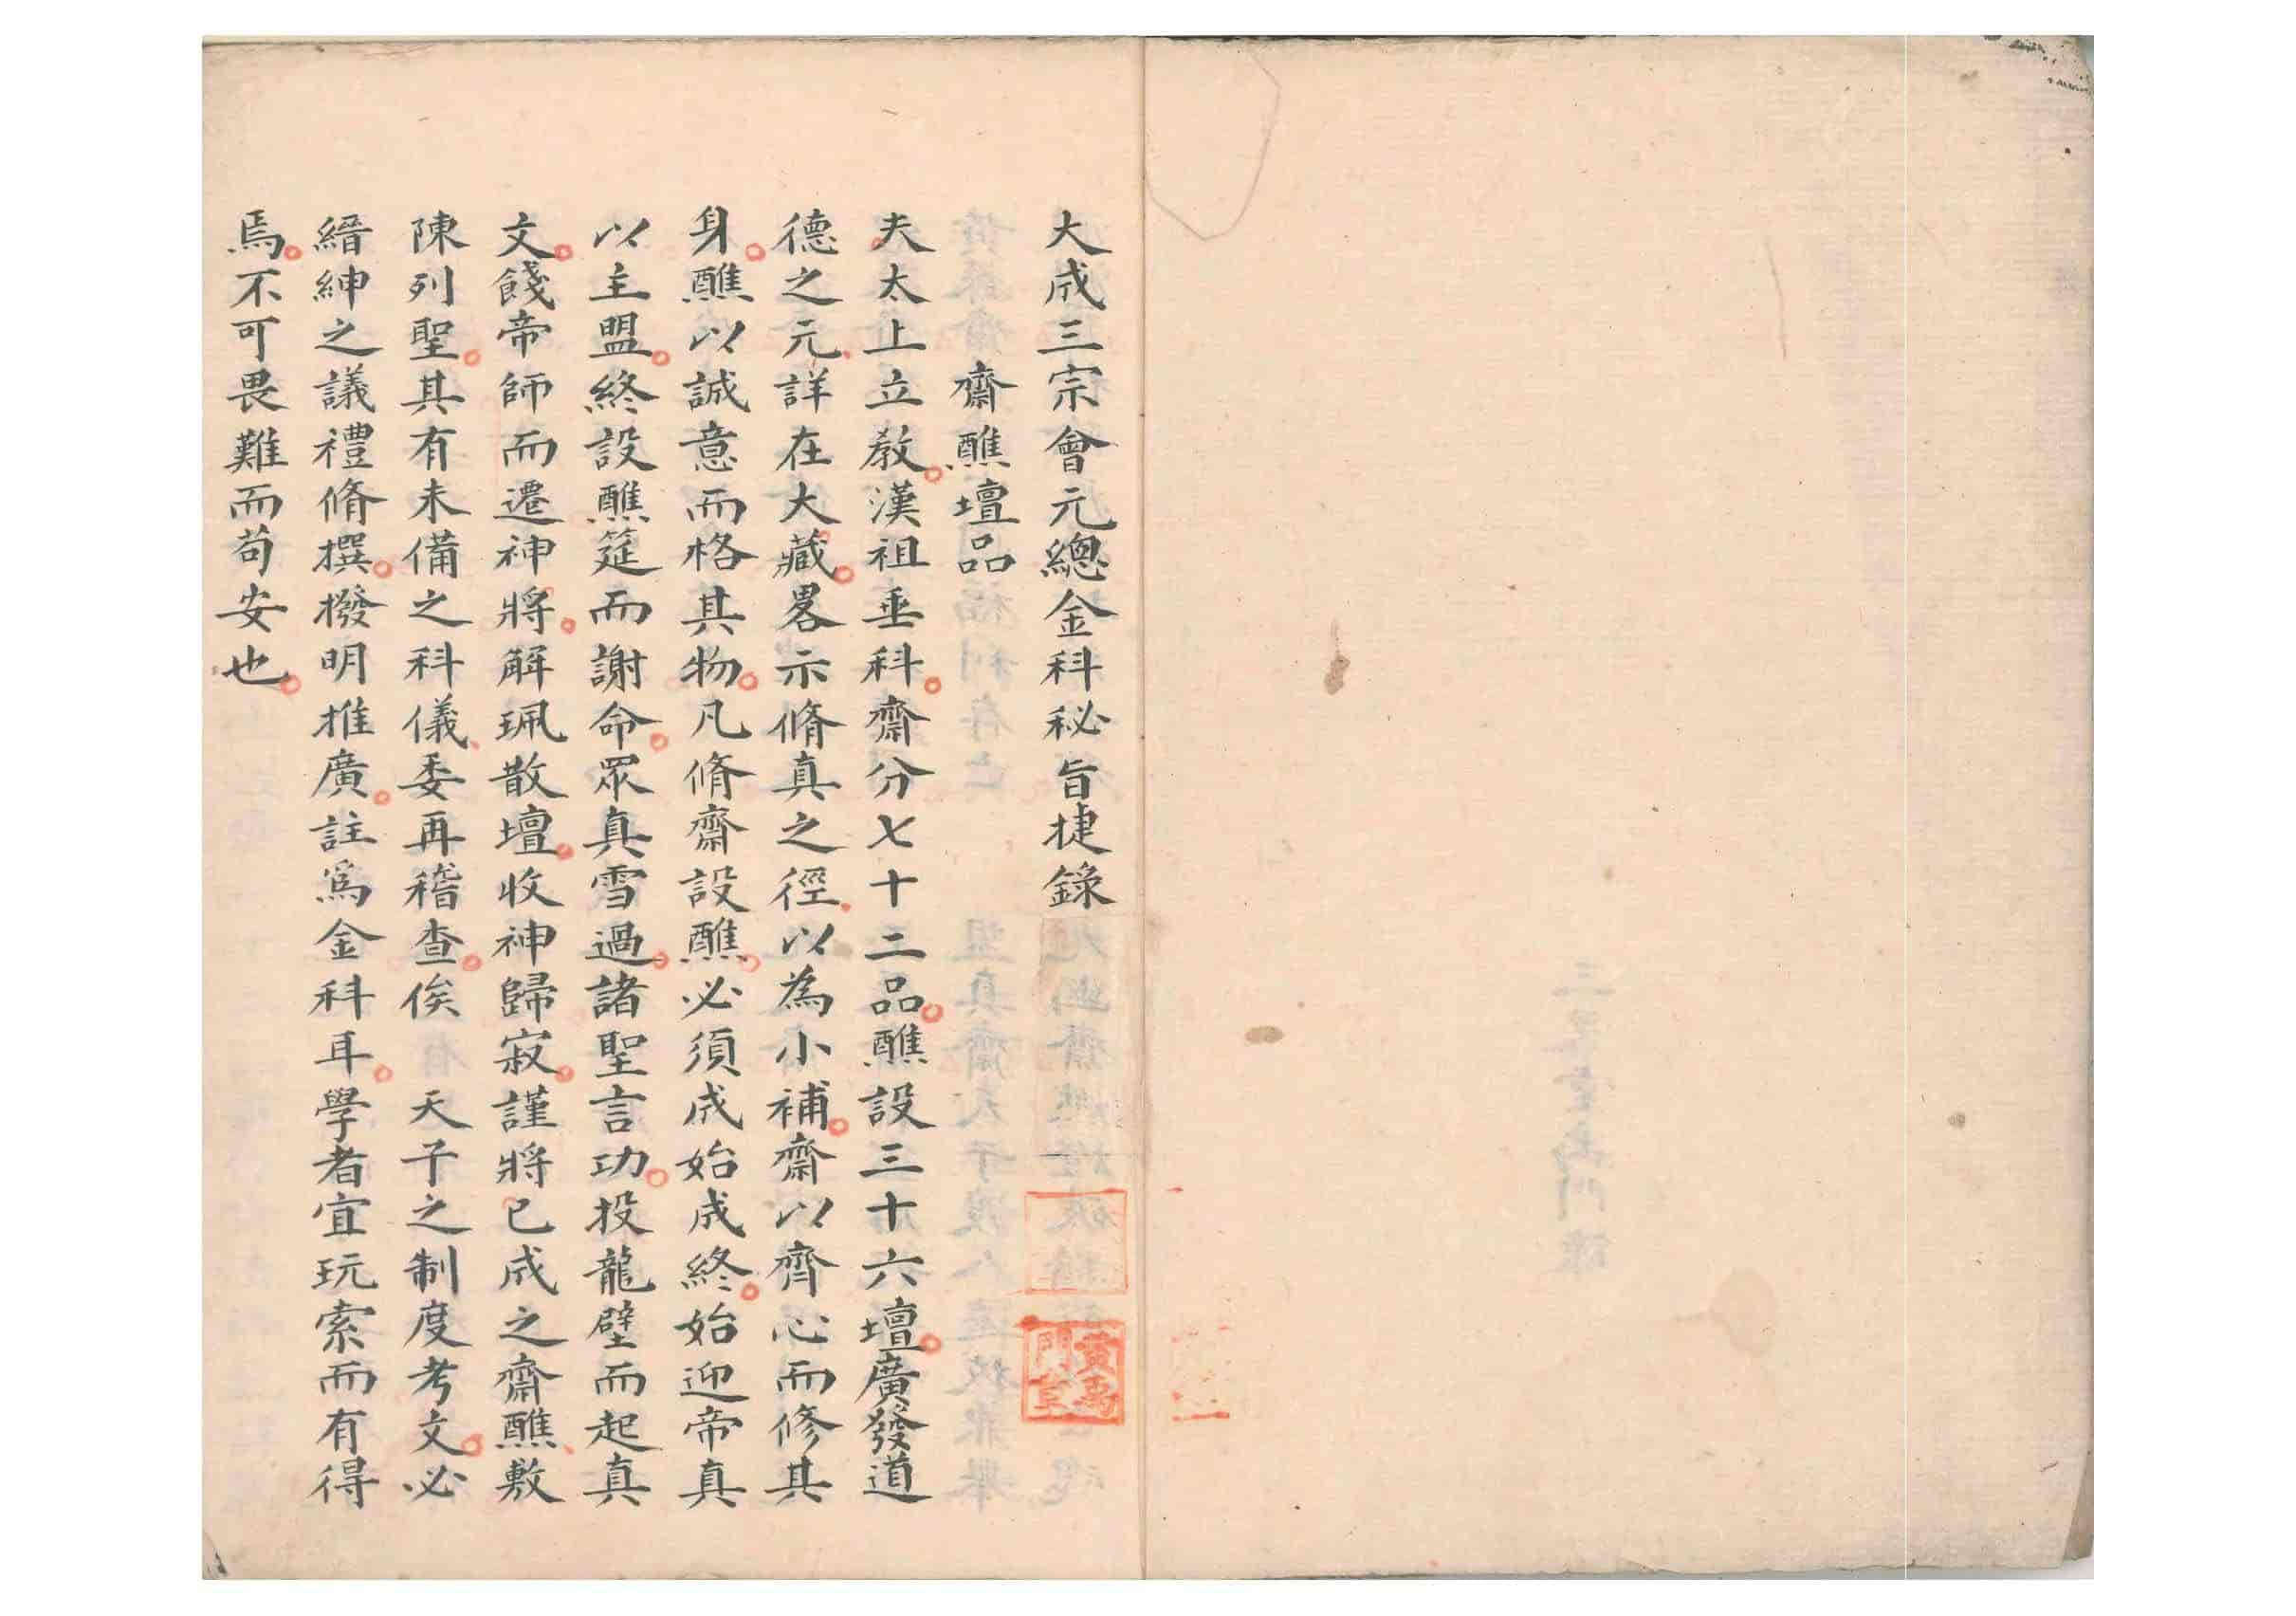 大成三宗會元總金科秘旨捷錄
齋醮壇品
夫太上立教漢祖垂科齋分七十二品醮設三十六壇廣發道
德之元詳在大藏畧示脩真之徑以為小補齋以齊心而修其
身醮以誠意而格其物凡脩齋設醮必須成始成終始迎帝真
以主盟終設醮筵而謝命眾真雪過諸聖言功投龍璧而起真
文餞帝師而遷神將解珮散壇收神歸寂謹將已成之齋醮敷
陳列聖其有未備之科儀委再稽查俟 天子之制度考文必
縉紳之議禮脩撰撥明推廣註爲金科耳學者宜玩索而有得
焉不可畏難而苟安也